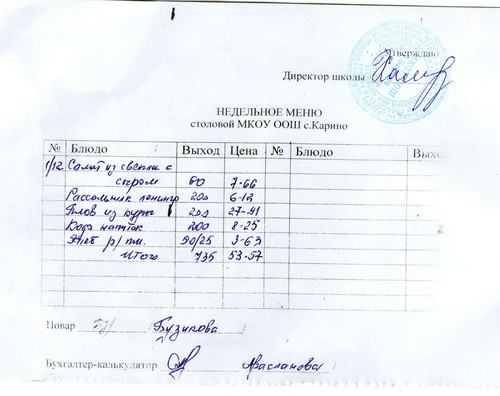 Утверждаю
Директор школы
НЕДЕЛЬНОЕ МЕНЮ
столовой МКОУ ООШ с.Карино
№ Блюдо Выход Цена № Блюдо Выхо
1/12 Салат из свеклы с
сыром 60 7-66
Рассольник ленингр 200 6-12
Плов из куры 200 27-91
Кофе напиток 200 8-25
Хлеб р/пш. 50/25 3-63
Итого 735 53-57
Повар Бузикова
Бухгалтер-калькулятор Арасланова